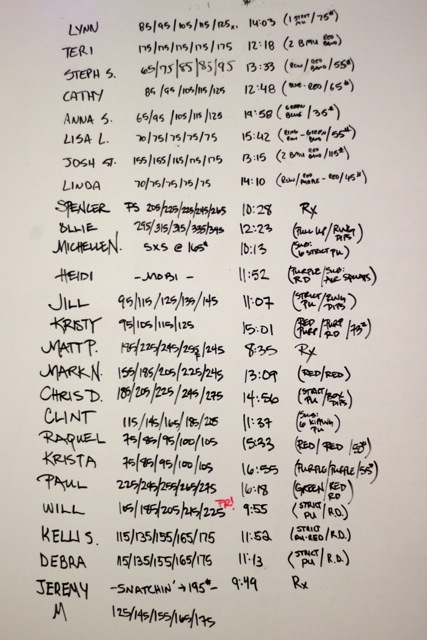 LYNN 85/95/105/115/125x. 14:03 (1 STRICT MU/75#)
TERI 175/175/175/175/175 12:18 (2 BMU RED BAND)
STEPH S. 65/75/85/85/95 13:33 (ROW/RED BAND/55#)
CATHY 85/95/105/115/125 12:48 (BLUE-RED/65#)
ANNA S. 65/95/105/115/125 19:58 (GREEN BLUE/35#)
LISA L. 70/75/75/75/75 15:42 (RING ROW-GREEN BAND/55#)
JOSH ST. 155/155/155/175/175 13:15 (2 BMU RED BAND/115#)
LINDA 70/75/75/75/75 14:10 (ROW/RED PURPLE-RED/45#)
SPENCER 75 205/225/225/245/265 10:28 Rx
BLLIE 295/315/315/335/345 12:23 (PULL UP/RING DIPS)
MICHELLE N. 5x5 @ 165# 10:13 (SUB: 6 STRICT PU)
HEIDI -MOBI- 11:52 (PURPLE/SUB: RD AIR SQUATS)
JILL 95/115/125/135/145 11:07 (STRICT PU/RING DIPS)
KRISTY 95/105/115/125 15:01 (RED PURP/PURP RD/73#)
MATT P. 195/225/245/255/245 8:35 Rx
MARK N. 155/185/205/225/245 13:09 (RED/RED)
CHRIS D. 185/205/225/245/275 14:56 (STRICT PU/BOX DIPS)
CLINT 115/145/165/185/205 11:37 (SUB: 6 KIPPING PU)
RAQUEL 75/85/95/100/105 15:33 (RED/RED/53#)
KRISTA 75/85/95/100/105 16:55 (PURPLE/PURPLE/55#)
PAUL 225/245/255/265/275 16:18 (GREEN/RED RD)
WILL 165/185/205/215/225 PR! 9:55 (STRICT PU/R.D.)
KELLI S. 115/135/155/165/175 11:52 (STRICT PU-RED/R.D.)
DEBRA 115/135/155/165/175 11:13 (STRICT PU/R.D.)
JEREMY -SNATCHIN'→195#- 9:49 Rx
M 125/145/155/165/175